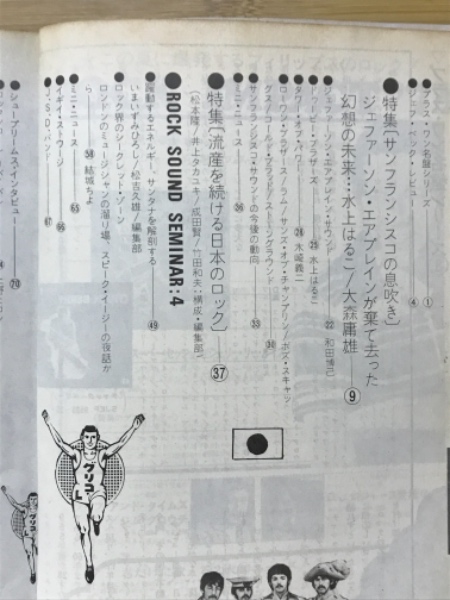 ●プラス・ワン名盤シリーズ──①
●ジェフ・ベック・レビュー──④
●特集〔サンフランシスコの息吹き〕
ジェファーソン・エアプレインが棄て去った
幻想の未来…水上はるこ/大森庸雄──⑨
ジェファーソン・エアプレイン・サウンド──㉒ 和田博巳
ドゥービー・ブラザーズ──㉕ 水上はるこ
タワー・オブ・パワー──㉘ 木崎義二
ローワン・ブラザース/ラム/サンズ・オブ・チャンプリン/ボズ・スキャッ
グス/コールド・ブラッド/ストーングラウンド──㉚
サンフランシスコ・サウンドの今後の動向──㉝
●ミニ・ニュース──㊱
●特集〔流産を続ける日本のロック〕──㊲
(松本隆/井上タカユキ/成田賢/竹田和夫:構成・編集部)
●ROCK SOUND SEMINAR:4
躍動するエネルギー、サンタナを解剖する──㊾
いまいずみひろし/松吉久雄/編集部
●ロック界のシークレット・ゾーン
ロンドンのミュージシャンの溜り場、スピーク・イージーの夜話か
ら──58 結城ちよ
●ミニ・ニュース──65
●イギイ・ストゥージ──66
●J.S.D.バンド──67
●シュープリームス・インタビュー──70
グリコ
L